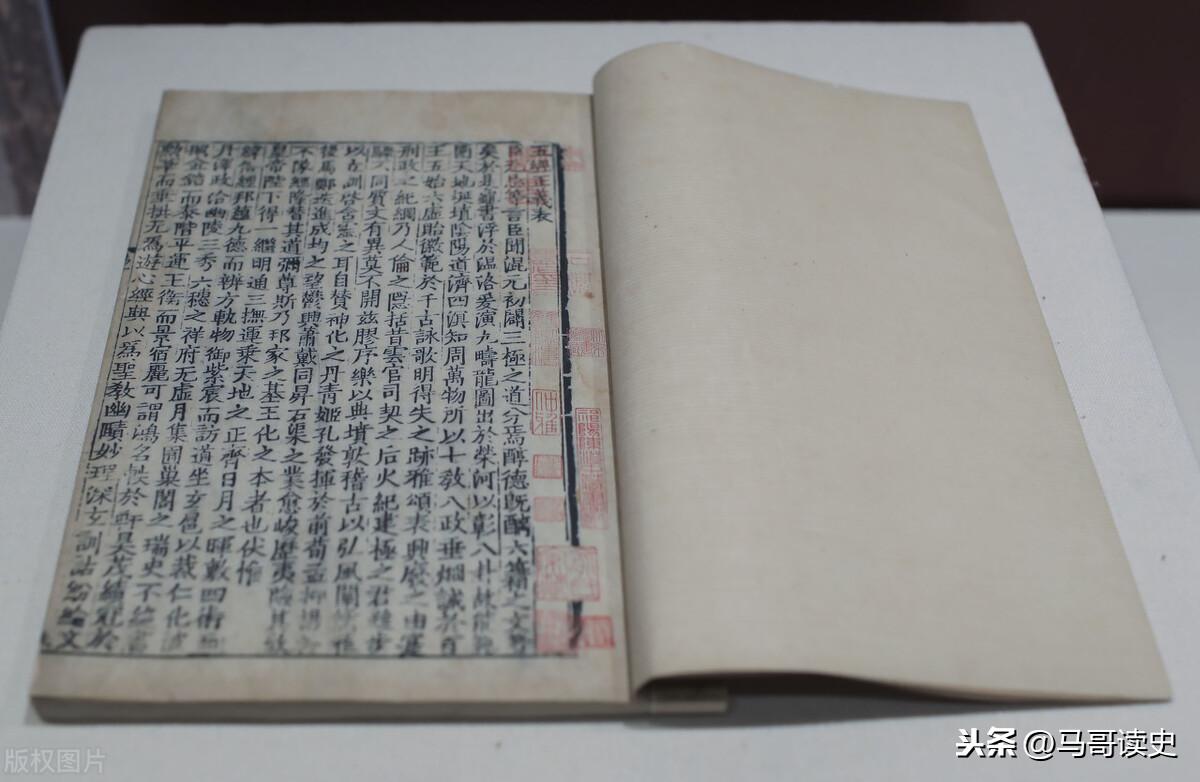 五經正義表
言臣聞混元初闢三極之道分焉醇德既醨六籍之文
矣於是龜書浮於溫洛爰演九疇龍圖出於榮河以彰八卦故能
圍天地埏埴陰陽道濟四溟知周萬物所以七教八政垂烱誡於百
王五始六虛貽徽範於千古詠歌明得失之跡雅頌表興廢之由寔
刑政之紀綱乃人倫之隱括昔雲官司契之后火紀建極之君雖步
驟不同質文有異莫不開茲膠序樂以典墳敦稽古以弘風闡
以立訓啓含靈之耳目贊神化之丹青姬孔發揮於前荀孟抑揚
後馬鄭迭進成均之望鬱興蕭戴同昇石渠之業愈峻歷夷險其
不隊經隆替其道彌尊斯乃邦家之基王化之本者也伏惟
皇帝陛下得一繼明通三撫運乘天地之正齊日月之暉敷四術而
緯俗經邦蘊九德而辨方軌物御紫宸而訪道坐玄扈以裁仁化
丹澤政洽幽陵三秀六穗之祥府无虛月集囿巢閣之瑞史不絕書
照金鏡而泰階平運玉衡而景宿麗可謂鴻名軼於軒昊茂績冠於
勛華而垂拱无為遊心經典以為聖教幽賾妙理深玄訓詁紛綸文
版权图片
头条 @马哥读史